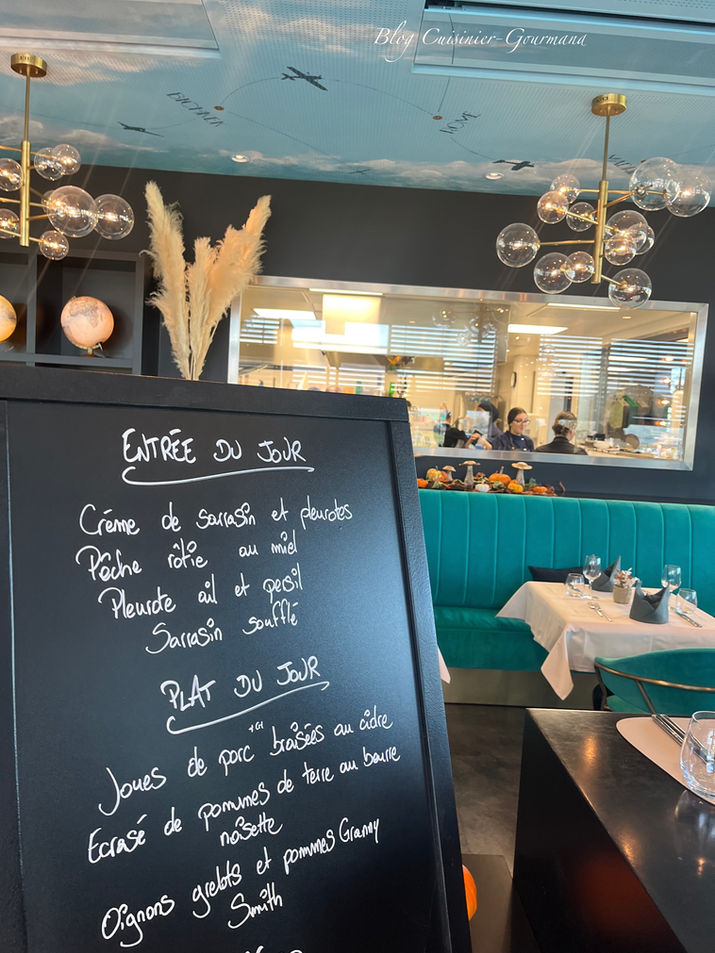 Blog Cuisinier-Gourmand
HOME
ENTRÉE DU JOUR
Crème de sarrasin et pleurotes
Pêche rôtie au miel
Pleurote ail et persil
Sarrasin soufflé
PLAT DU JOUR
Joues de porc braisées au cidre
Ecrasé de pommes de terre au beurre
noisette
Oignons grelots et pommes Granny
Smith